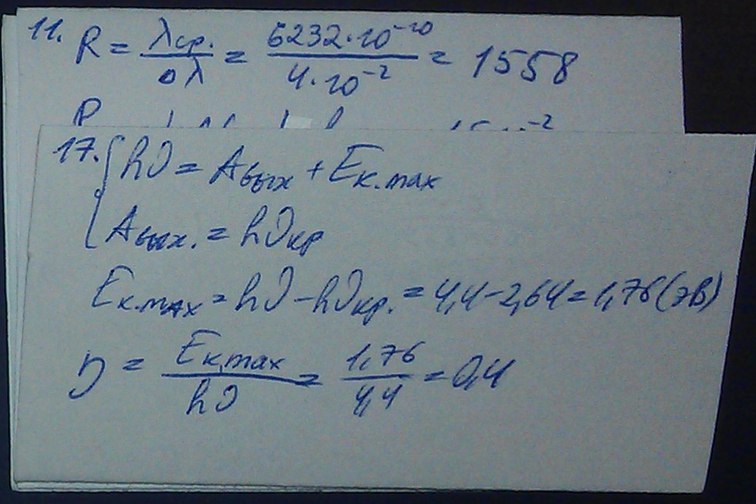 11. R = λср. / ∆λ = 6232·10⁻¹⁰ / 4·10⁻² = 1558
17. { hν = Aвых + Eк.max
Aвых. = hνкр
Eк.max = hν - hνкр. = 4,4 - 2,64 = 1,76 (эВ)
η = Eк,max / hν = 1,76 / 4,4 = 0,4